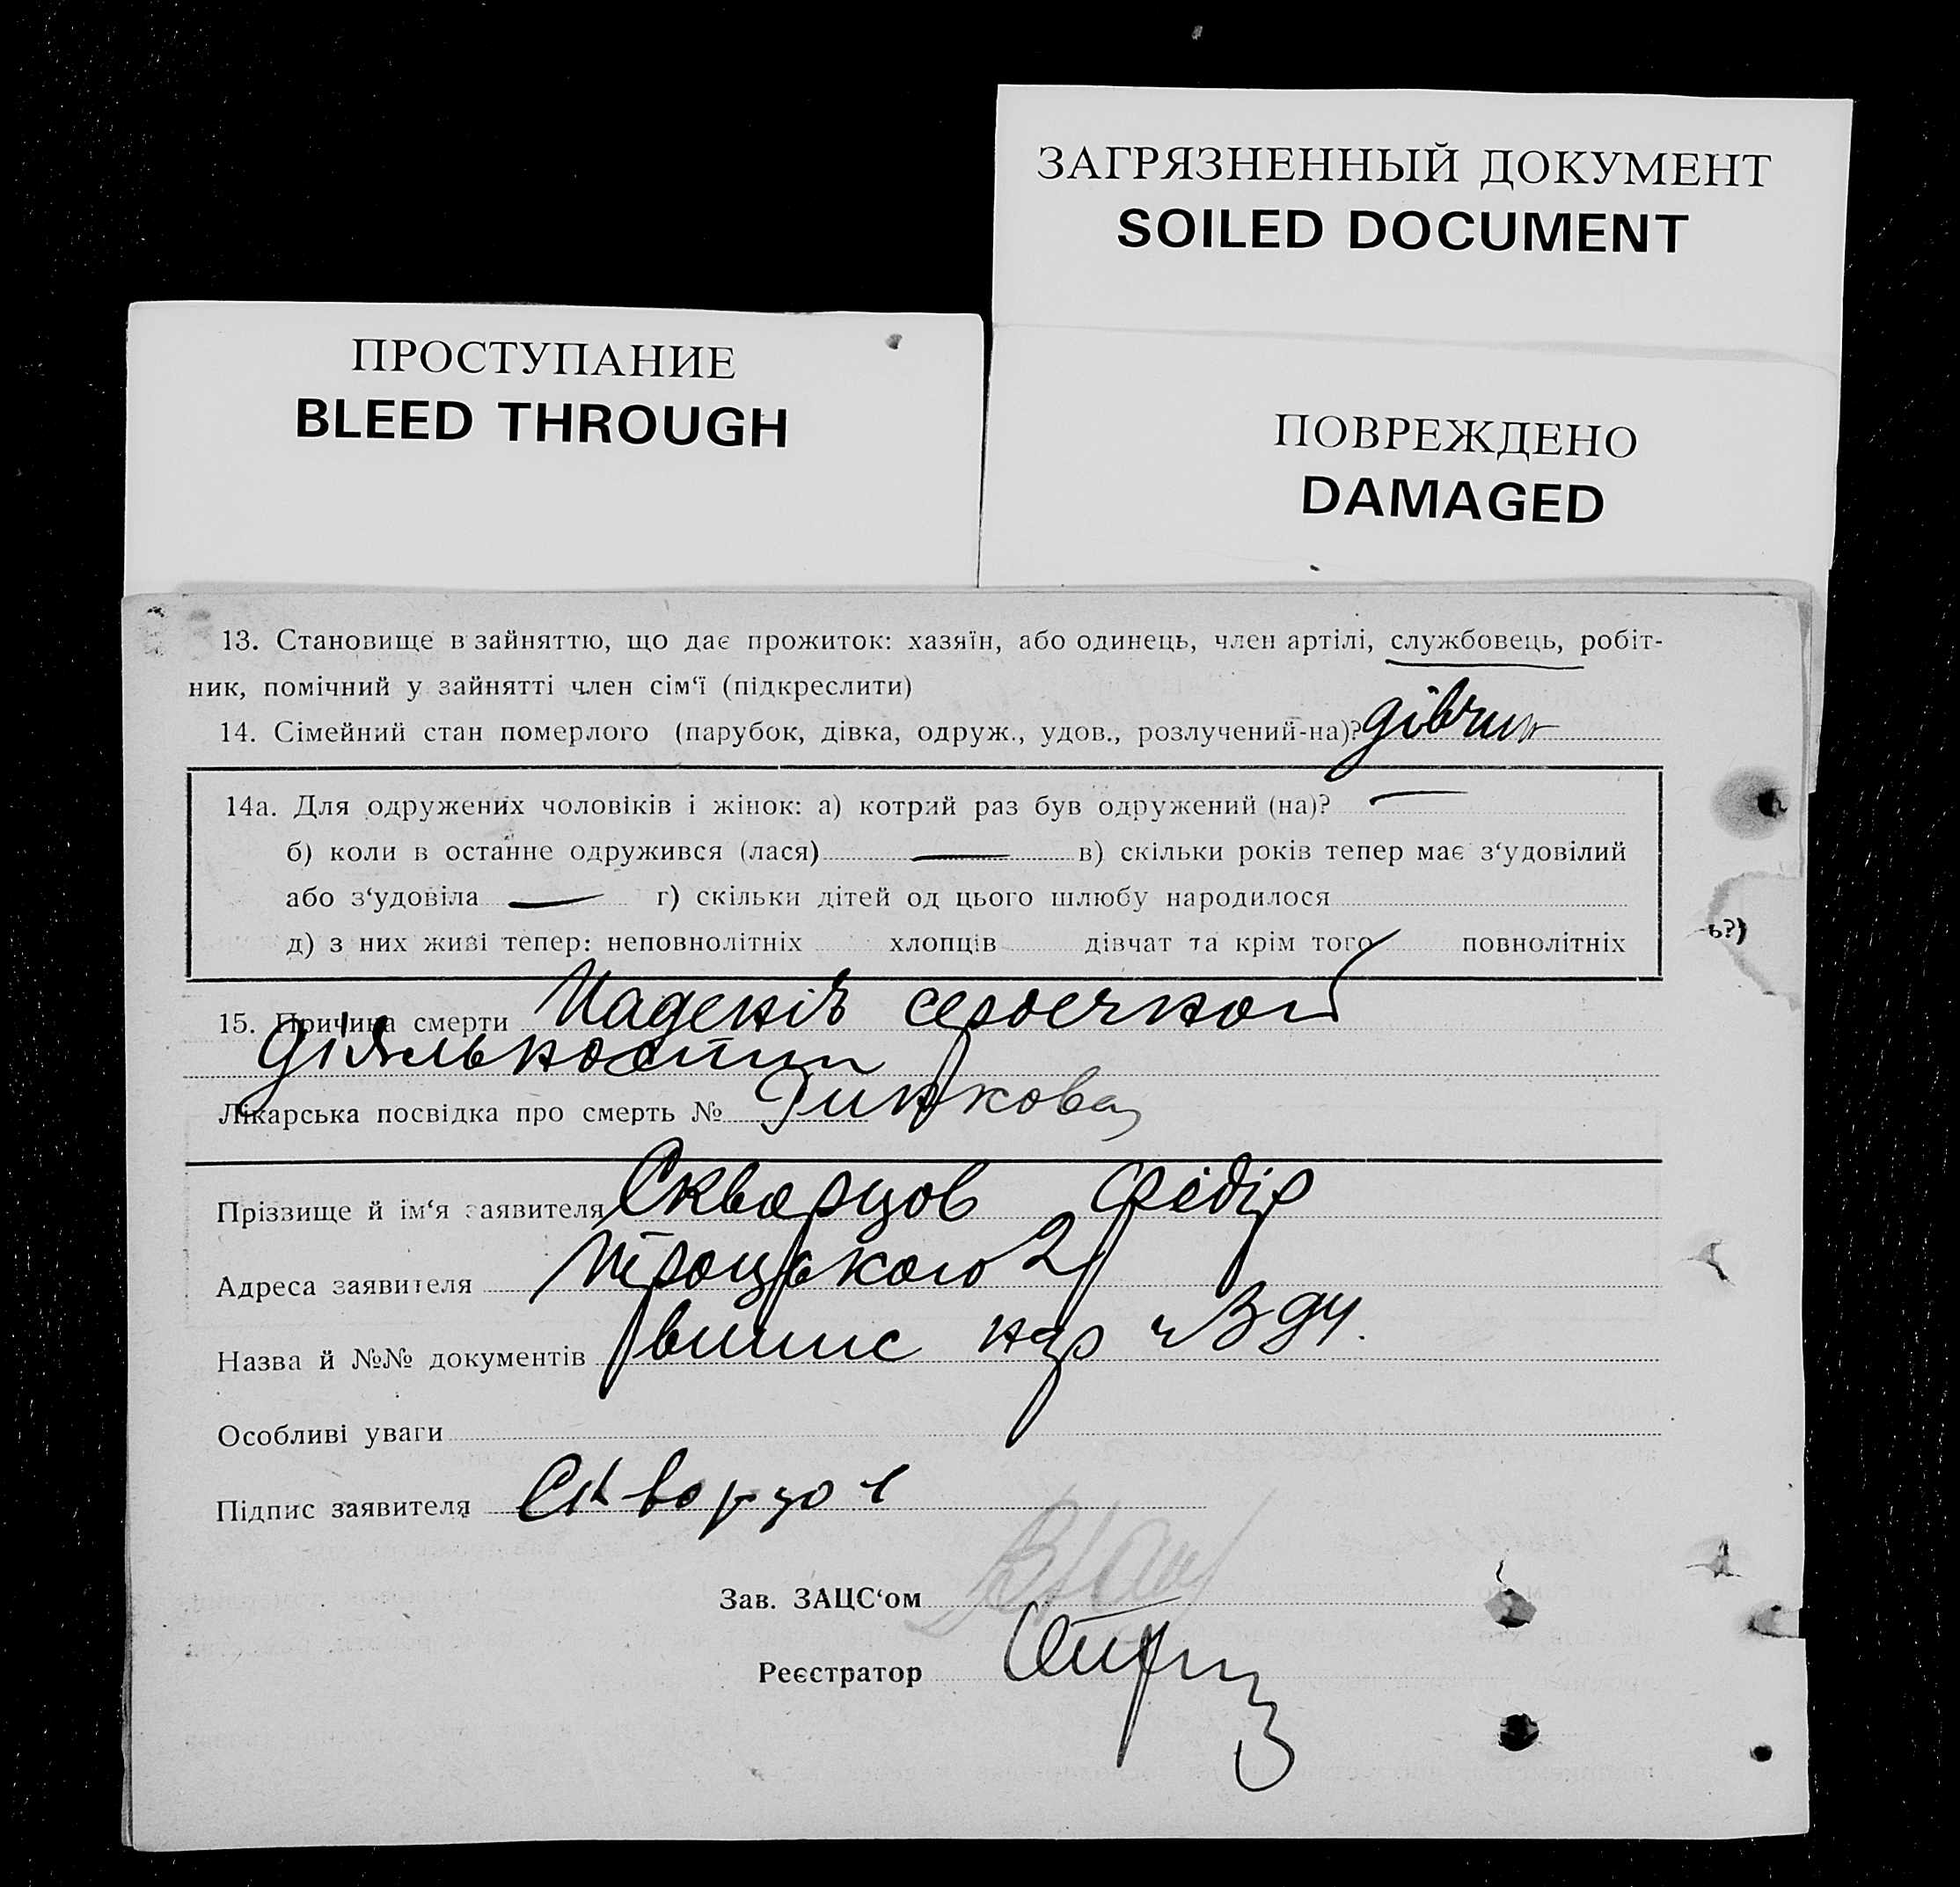 ЗАГРЯЗНЕННЫЙ ДОКУМЕНТ
SOILED DOCUMENT
ПРОСТУПАНИЕ
BLEED THROUGH
ПОВРЕЖДЕНО
DAMAGED
13. Становище в зайняттю, що дає прожиток: хазяїн, або одинець, член артілі, службовець, робіт-
ник, помічний у зайнятті член сім‘ї (підкреслити)
14. Сімейний стан померлого (парубок, дівка, одруж., удов., розлучений-на)?
14а. Для одружених чоловіків і жінок: а) котрий раз був одружений (на)? —
б) коли в останнє одружився (лася) — в) скільки років тепер має з‘удовілий
або з‘удовіла — г) скільки дітей од цього шлюбу народилося
д) з них живі тепер: неповнолітніх хлопців дівчат та крім того повнолітніх
ь?)
15. Причина смерти Паденіє сердечной
діяльности
Лікарська посвідка про смерть №
Прізвище й ім‘я заявителя Скворцов Федір
Адреса заявителя Троцького 2
Назва й №№ документів
Особливі уваги
Підпис заявителя Скворцов
Зав. ЗАЦС‘ом
Реєстратор